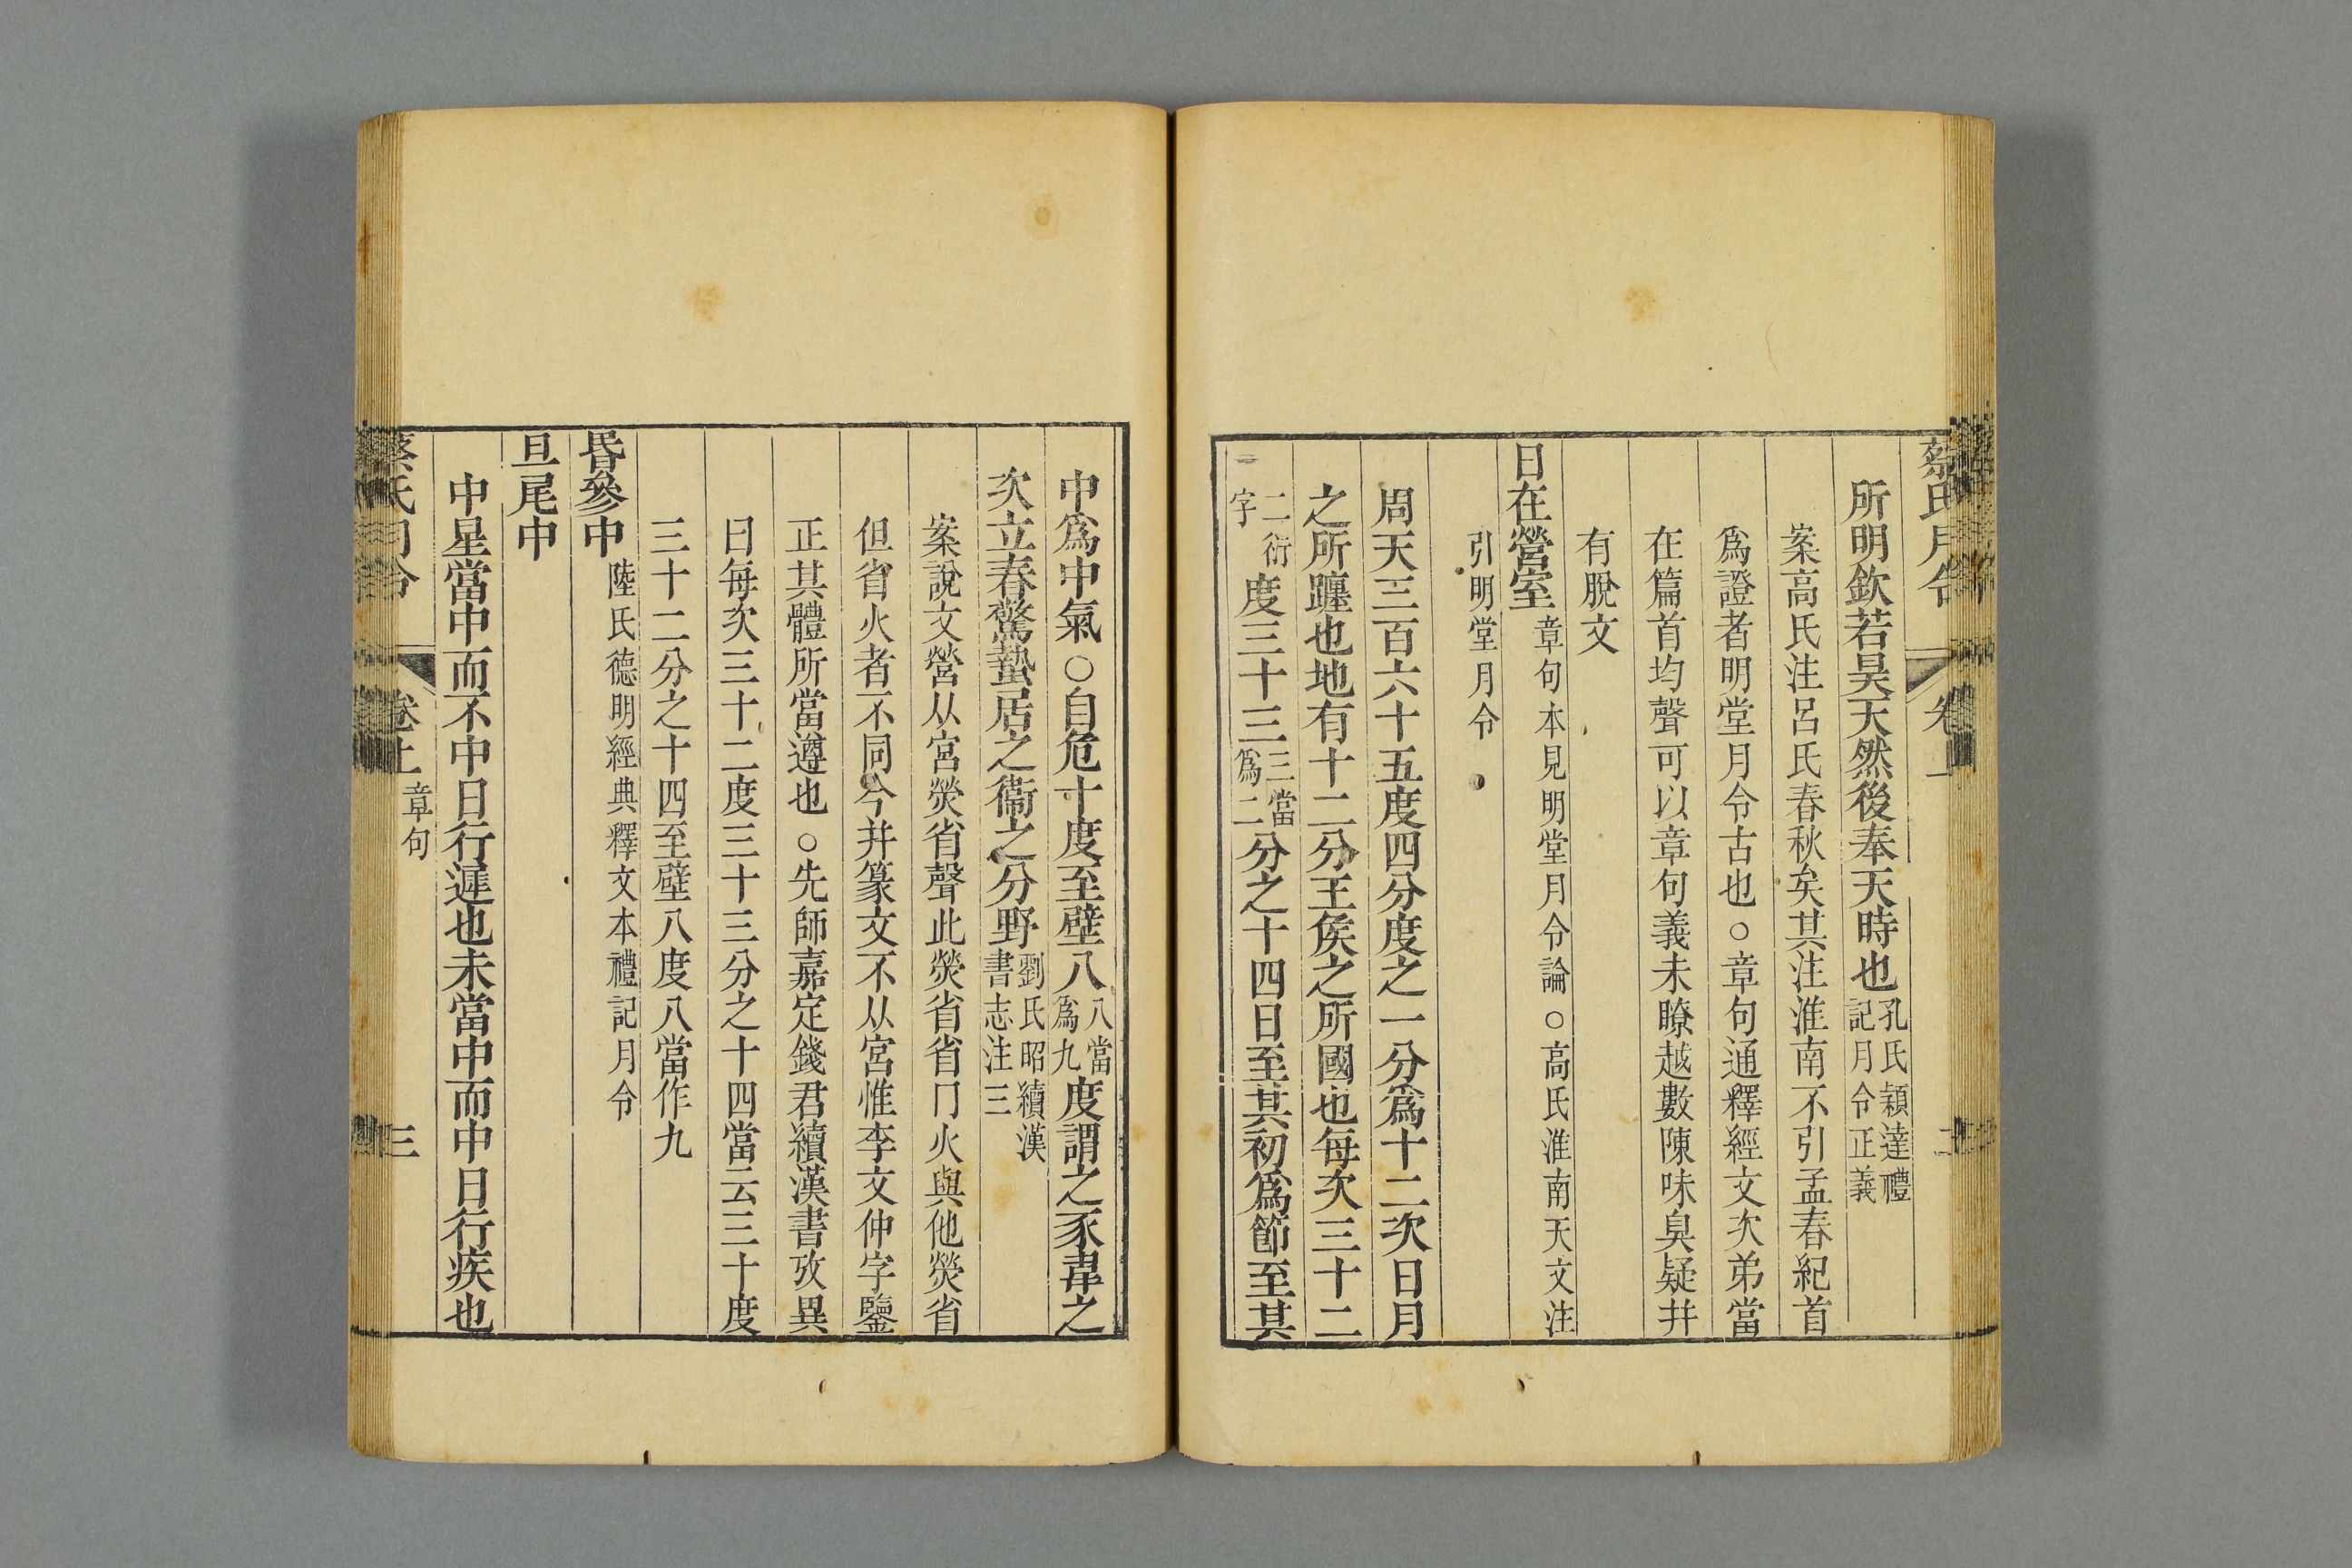 蔡氏月令 卷
所明欽若昊天然後奉天時也孔氏穎達禮記月令正義
案高氏注呂氏春秋矣其注淮南不引孟春紀首
爲證者明堂月令古也○章句通釋經文次弟當
在篇首均聲可以章句義未瞭越數陳味臭疑幷
有脫文
日在營室章句本見明堂月令論○高氏淮南天文注
引明堂月令
周天三百六十五度四分度之一分爲十二次日月
之所躔也地有十二分王矦之所國也每次三十二
二衍字度三十三三當爲二分之十四日至其初爲節至其
中爲中氣○自危十度至壁八八當爲九度謂之豕韋之
次立春驚蟄居之衞之分野劉氏昭續漢書志注三
案說文營从宮熒省聲此熒省省冂火與他熒省
但省火者不同今并篆文不从宮惟李文仲字鑒
正其體所當遵也○先師嘉定錢君續漢書攷異
曰每次三十二度三十三分之十四當云三十度
三十二分之十四至壁八度八當作九
昏參中陸氏德明經典釋文本禮記月令
旦尾中
中星當中而不中日行遲也未當中而中日行疾也
蔡氏月令 卷上 章句 三